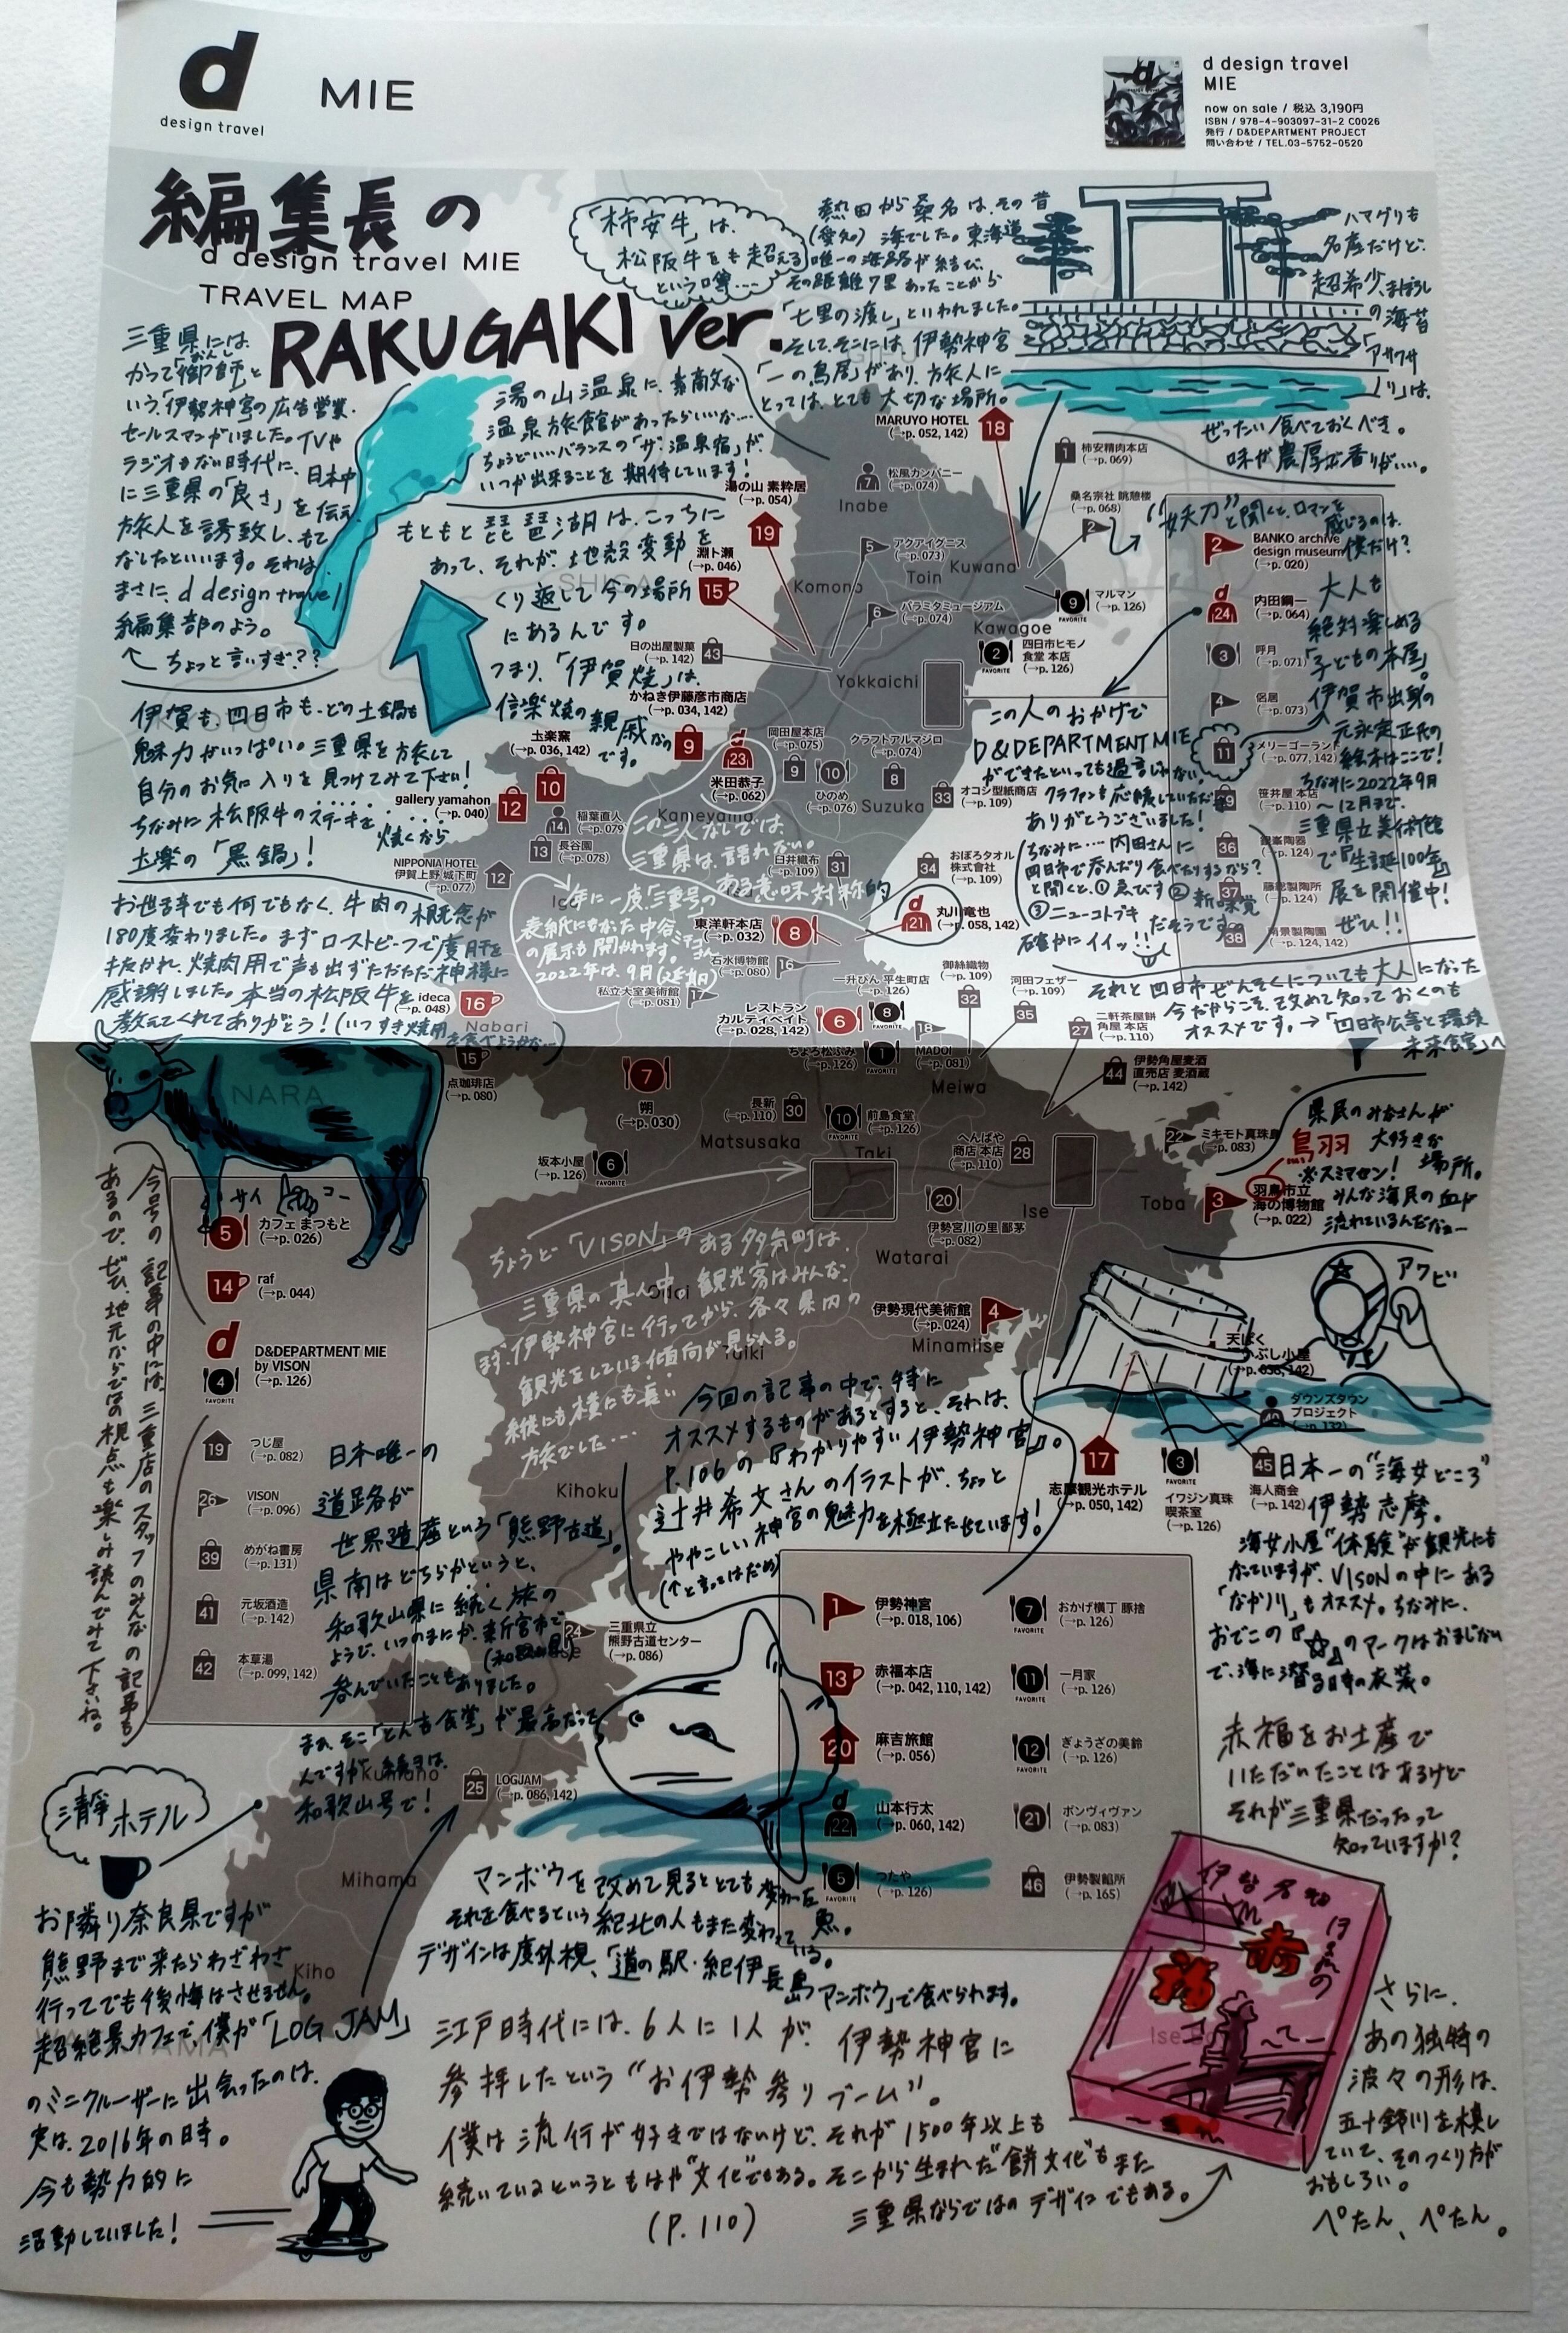 d
design travel
MIE
d design travel
MIE
now on sale / 税込 3,190円
ISBN / 978-4-903097-31-2 C0026
発行 / D&DEPARTMENT PROJECT
問い合わせ / TEL.03-5752-0520
編集長の
d design travel MIE
TRAVEL MAP
RAKUGAKI ver.
「柿安牛」は、
松阪牛をも超える
という噂…
熱田から桑名は、その昔
(愛知) 海でした。東海道
唯一の海路が結び、
その距離7里あったことから
「七里の渡し」といわれました。
そして、そこには、伊勢神宮
「一の鳥居」があり、旅人に
とっては、とても大切な場所。
ハマグリも
名産だけど、
超希少、まぼろし
の海苔
「アサクサ
ノリ」は、
ぜったい食べておくべき。
味が濃厚で香りが…。
三重県には、
かつて「御師」と
おんし
いう、伊勢神宮の広告営業、
セールスマンがいました。TVや
ラジオもない時代に、日本中
に三重県の「良さ」を伝え、
旅人を誘致し、もて
なしたといいます。それは
まさに、d design travel
編集部のよう。
↑ ちょっと言いすぎ??
湯の山温泉に、素敵な
温泉旅館があったらいいな…
ちょうどいいバランスの「ザ・温泉宿」が、
いつか出来ることを期待しています!
もともと琵琶湖は、こっちに
あって、それが、地殻変動を
くり返して今の場所
にあるんです。
つまり、「伊賀焼」は、
信楽焼の親戚なの
です。
伊賀も四日市も、どの土鍋も
魅力がいっぱい。三重県を旅して
自分のお気に入りを見つけてみて下さい!
ちなみに松阪牛のステーキを
焼くなら
圡楽の「黒鍋」!
お世辞でも何でもなく、牛肉の概念が
180度変わりました。まずローストビーフで度肝を
抜かれ、焼肉用で声も出ずただただ神様に
感謝しました。本当の松阪牛を
教えてくれてありがとう!(いつすき焼用
を食べようかな…)
MARUYO HOTEL
(→p. 052, 142)
18
1
柿安精肉本店
(→p. 069)
7
松風カンパニー
(→p. 074)
Inabe
桑名宗社 眺憩楼
(→p. 068)
2
湯の山 素粋居
(→p. 054)
19
5
アクアイグニス
(→p. 073)
Komono
Toin
Kuwana
淵ト瀬
(→p. 046)
15
SHIGA
6
パラミタミュージアム
(→p. 074)
9
FAVORITE
マルマン
(→p. 126)
Kawagoe
2
FAVORITE
四日市ヒモノ
食堂 本店
(→p. 126)
日の出屋製菓
(→p. 142)
43
Yokkaichi
かねき伊藤彦市商店
(→p. 034, 142)
9
圡楽窯
(→p. 036, 142)
10
d
23
米田恭子
(→p. 062)
岡田屋本店
(→p. 075)
9
10
ひのめ
(→p. 076)
クラフトアルマジロ
(→p. 074)
8
Suzuka
33
オコシ型紙商店
(→p. 109)
gallery yamahon
(→p. 040)
12
14
稲葉直人
(→p. 079)
Kameyama
13
長谷園
(→p. 078)
NIPPONIA HOTEL
伊賀上野 城下町
(→p. 077)
12
臼井織布
(→p. 109)
31
34
おぼろタオル
株式會社
(→p. 109)
Iga
この二人なしでは、
三重県は、語れない。
ある意味対称的
年に一度、三重号の
表紙にもなった中谷ミチコさん
の展示も開かれます。
2022年は、9月(津市)
東洋軒本店
(→p. 032)
8
d
21
丸川竜也
(→p. 058, 142)
石水博物館
(→p. 080)
16
私立大室美術館
(→p. 081)
17
一升びん 平生町店
(→p. 126)
8
FAVORITE
御絲織物
(→p. 109)
32
河田フェザー
(→p. 109)
35
ideca
(→p. 048)
16
Nabari
レストラン
カルティベイト
(→p. 028, 142)
6
ちょろ松ふみ
(→p. 126)
1
FAVORITE
18
MADOI
(→p. 081)
27
二軒茶屋餅
角屋 本店
(→p. 110)
44
伊勢角屋麦酒
直売店 麦酒蔵
(→p. 142)
Meiwa
“妖刀”と聞くと、ロマンを
感じるのは、
僕だけ?
2
BANKO archive
design museum
(→p. 020)
d
24
内田鋼一
(→p. 064)
3
呼月
(→p. 071)
4
侶居
(→p. 073)
11
メリーゴーランド
(→p. 077, 142)
笹井屋 本店
(→p. 110)
36
銀峯陶器
(→p. 124)
37
藤総製陶所
(→p. 124)
38
南景製陶園
(→p. 124, 142)
大人も
絶対楽しめる
「子どもの本屋」
伊賀市出身の
元永定正氏の
絵本はここで!
ちなみに2022年9月
~12月まで、
三重県立美術館
で「生誕100年」
展を開催中!
ぜひ!!
この人のおかげで
D&DEPARTMENT MIE
ができたといっても過言じゃない。
クラファンも応援していただき
ありがとうございました!
(ちなみに…内田さんに
四日市で呑んだり食べたりするなら?
と聞くと、①ゑびす②新味覚
③ニューコトブキ だそうです。
確かにイイッ!!
それと四日市ぜんそくについても大人になった
今だからこそ、改めて知っておくのも
オススメです。→「四日市公害と環境
未来館」へ
15
点珈琲店
(→p. 080)
7
朔
(→p. 030)
長新
(→p. 110)
30
10
FAVORITE
前島食堂
(→p. 126)
Matsusaka
Taki
坂本小屋
(→p. 126)
6
FAVORITE
へんばや
商店 本店
(→p. 110)
28
22
ミキモト真珠島
(→p. 083)
20
伊勢宮川の里 鄙茅
(→p. 082)
Ise
Toba
3
羽鳥市立
海の博物館
(→p. 022)
Watarai
鳥羽
県民のみなさんが
大好きな
場所。
※スミマセン!
みんな海民の血が
流れているんだなー
NARA
サイコー
5
カフェ まつもと
(→p. 026)
14
raf
(→p. 044)
d
D&DEPARTMENT MIE
by VISON
(→p. 126)
4
FAVORITE
19
つじ屋
(→p. 082)
26
VISON
(→p. 096)
39
めがね書房
(→p. 131)
41
元坂酒造
(→p. 142)
42
本草湯
(→p. 099, 142)
今号の記事の中には、三重店のスタッフのみんなの記事も
あるので、ぜひ、地元ならではの視点も楽しみ読んでみて下さいね。
ちょうど「VISON」のある多気町は、
三重県の真ん中。観光客はみんな、
まず、伊勢神宮に行ってから、各々県内の
観光をしている傾向が見られる。
縦にも横にも長い
旅でした…
Odai
Taiki
伊勢現代美術館
(→p. 024)
4
Minamiise
アワビ
天ぱく
かつおいぶし小屋
(→p. 038, 142)
ダウンズタウン
プロジェクト
(→p. 132)
17
志摩観光ホテル
(→p. 050, 142)
3
イワジン真珠
喫茶室
(→p. 126)
45
海人商会
(→p. 142)
日本一の“海女どころ”
伊勢志摩。
海女小屋“体験”が観光にも
なっていますが、VISONの中にある
「なか川」もオススメ。ちなみに、
おでこの『☆』のマークはおまじない
で、海に潜る時の衣装。
今回の記事の中で、特に
オススメするものがあるとすると、それは、
P.106の『わかりやすい伊勢神宮』。
辻井希文さんのイラストが、ちょっと
ややこしい神宮の魅力を極立たせています!
(↑と言ってはだめ)
Kihoku
日本唯一の
道路が
世界遺産という「熊野古道」。
県南はどちらかというと、
和歌山県に続く旅の
ようで、いつのまにか、新宮市で
(和歌山県)
呑んでいたこともありました。
まぁ、そこ「とん吉食堂」が最高だって
んですが、続きは、
和歌山号で!
24
三重県立
熊野古道センター
(→p. 086)
25
LOGJAM
(→p. 086, 142)
Kumano
Mihama
Kiho
1
伊勢神宮
(→p. 018, 106)
13
赤福本店
(→p. 042, 110, 142)
20
麻吉旅館
(→p. 056)
d
22
山本行太
(→p. 060, 142)
5
FAVORITE
つたや
(→p. 126)
7
FAVORITE
おかげ横丁 豚捨
(→p. 126)
11
FAVORITE
一月家
(→p. 126)
12
FAVORITE
ぎょうざの美鈴
(→p. 126)
21
ボンヴィヴァン
(→p. 083)
46
伊勢製餡所
(→p. 165)
赤福をお土産で
いただいたことはあるけど
それが三重県だったって
知っていますか?
清靜ホテル
お隣り奈良県ですが
熊野まで来たらわざわざ
行ってでも後悔はさせません。
超絶景カフェで、僕が「LOG JAM」
のミニクルーザーに出会ったのは、
実は、2016年の時。
今も勢力的に
活動していました!
マンボウを改めて見るととても変わった魚。
それを食べるという紀北の人もまた変わっている。
デザインは度外視、「道の駅・紀伊長島マンボウ」で食べられます。
江戸時代には、6人に1人が、伊勢神宮に
参拝したという“お伊勢参りブーム”。
僕は流行が好きではないけど、それが1500年以上も
続いているというともはや“文化”でもある。そこから生まれた“餅文化”もまた
三重県ならではのデザインでもある。
(P. 110)
伊勢名物
赤福
さらに、
あの独特の
波々の形は、
五十鈴川を模し
ていて、そのつくり方が
おもしろい。
ぺたん、ぺたん。